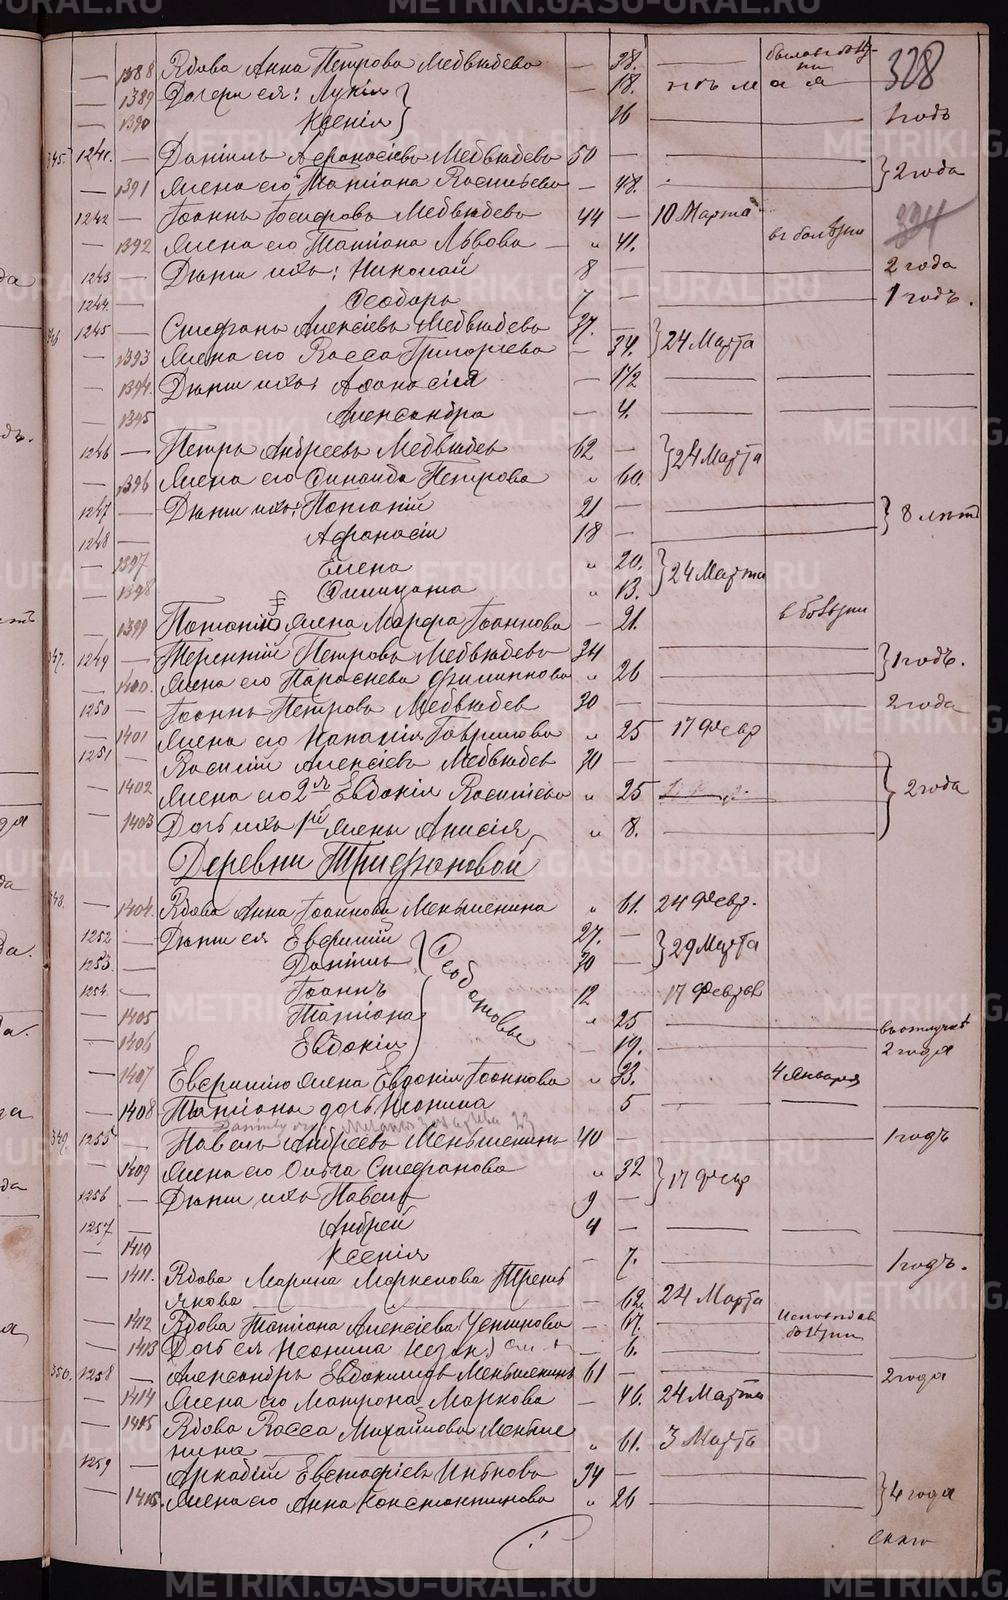 328
1388 Вдова Анна Петрова Медведева — 38.
1389 Дочери ея: Лукія — 18. 
1390 Ксенія 16 1 годъ
345. 1241. Даніилъ Афанасіевъ Медведевъ 50 — 2 года
1391 Жена его Татіана Васильева — 48.
1242 Іоаннъ Іосифовъ Медведевъ 44 — 10 Марта
1392 Жена его Татіана Львова — 41. въ болѣзни 324
1243 Дѣти ихъ: Николай 8 2 года
1244 Ѳеодоръ 7 — 1 годъ.
346 1245 Стефанъ Алексіевъ Медведевъ 37. —
1393 Жена его Васса Григорьева — 34. 24 Марта
1394. Дѣти ихъ: Аѳанасія — 1/2
1395 Александра — 4.
1246 Петръ Андреевъ Медведевъ 62 — 24 Марта
1396 Жена его Зинаида Петрова 60.
1247 Дѣти ихъ: Потапій 21 — 8 лѣтъ
1248 Афанасій 18 —
1397 Елена 20. 24 Марта
1398 13.
1399 Потапій Жена Марфа Іоаннова — 21. въ болѣзни
347. 1249 Терентій Петровъ Медведевъ 34 — 1 годъ.
1400. Жена его Параскева Филиппова 26
1250 Іоаннъ Петровъ Медведевъ 30 — 2 года
1401 Жена его Наталія Гаврилова 25 17 Февр
1251 Василій Алексіевъ Медведевъ 30 —
1402 Жена его 2я Евдокія Васильева 25 2 года
1403 Дочь ихъ 1й жены Анисія 8.
Деревни Трифоновой
348. 1404. Вдова Анна Іоаннова Меньшенина 61. 24 Февр.
1252 Дѣти ея Евѳимій 27. — 29 Марта
1253. Даніилъ 30 — Ѳедотовы
1254 Іоаннъ 12 17 Феврал
1405 Татіана 25
1406 Евдокія — 19. 2 года
1407 Евѳимію Жена Евдокія Іоаннова 23. 4 Января
1408 Татіаны дочь Неонила 5
349. 1255 Павелъ Андреевъ Меньшенинъ 40 — 1 годъ
1409 Жена его Ольга Стефанова 32 17 Февр
1256 Дѣти ихъ Павелъ 9 —
1257 Андрей 4 —
1410 Ксенія — 7. 1 годъ.
1411. Вдова Марина Маркелова Треть
якова — 62. 24 Марта
1412 Вдова Татіана Алексіева Устинова — 67.
1413 Дочь ея Неонила — 6.
350. 1258 Александръ Евдокимовъ Меньшенинъ 61 — 2 года
1414 Жена его Матрона Маркова — 46. 24 Марта
1415 Вдова Васса Михайлова Меньше
нина 61. 3 Марта
1259 Аркадій Евстафіевъ 34 —
1416. Жена его Анна Константинова 26 4 года
METRIKI.GASO-URAL.RU